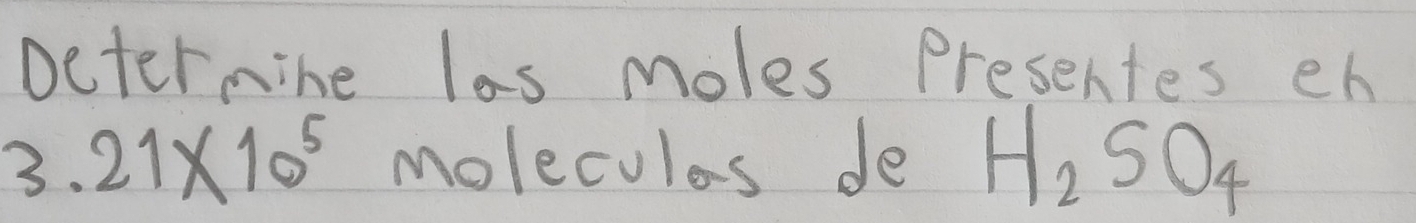 Determine las moles Presentes en
3.21X10⁵ moleculas de H₂SO₄